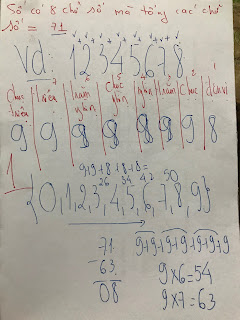 Số có 8 chữ số mà tổng các chữ
số = 71
Vd: 12345678
chục triệu | triệu | trăm nghìn | chục nghìn | nghìn | trăm | chục | đơn vị
9 9 9 8 9 9 9
9+9+8+8+8=
1
26 34 42 50
{0,1,2,3,4,5,6,7,8,9}
71
- 63
08
9+9+9+9+9+9+9
9×6=54
9×7=63